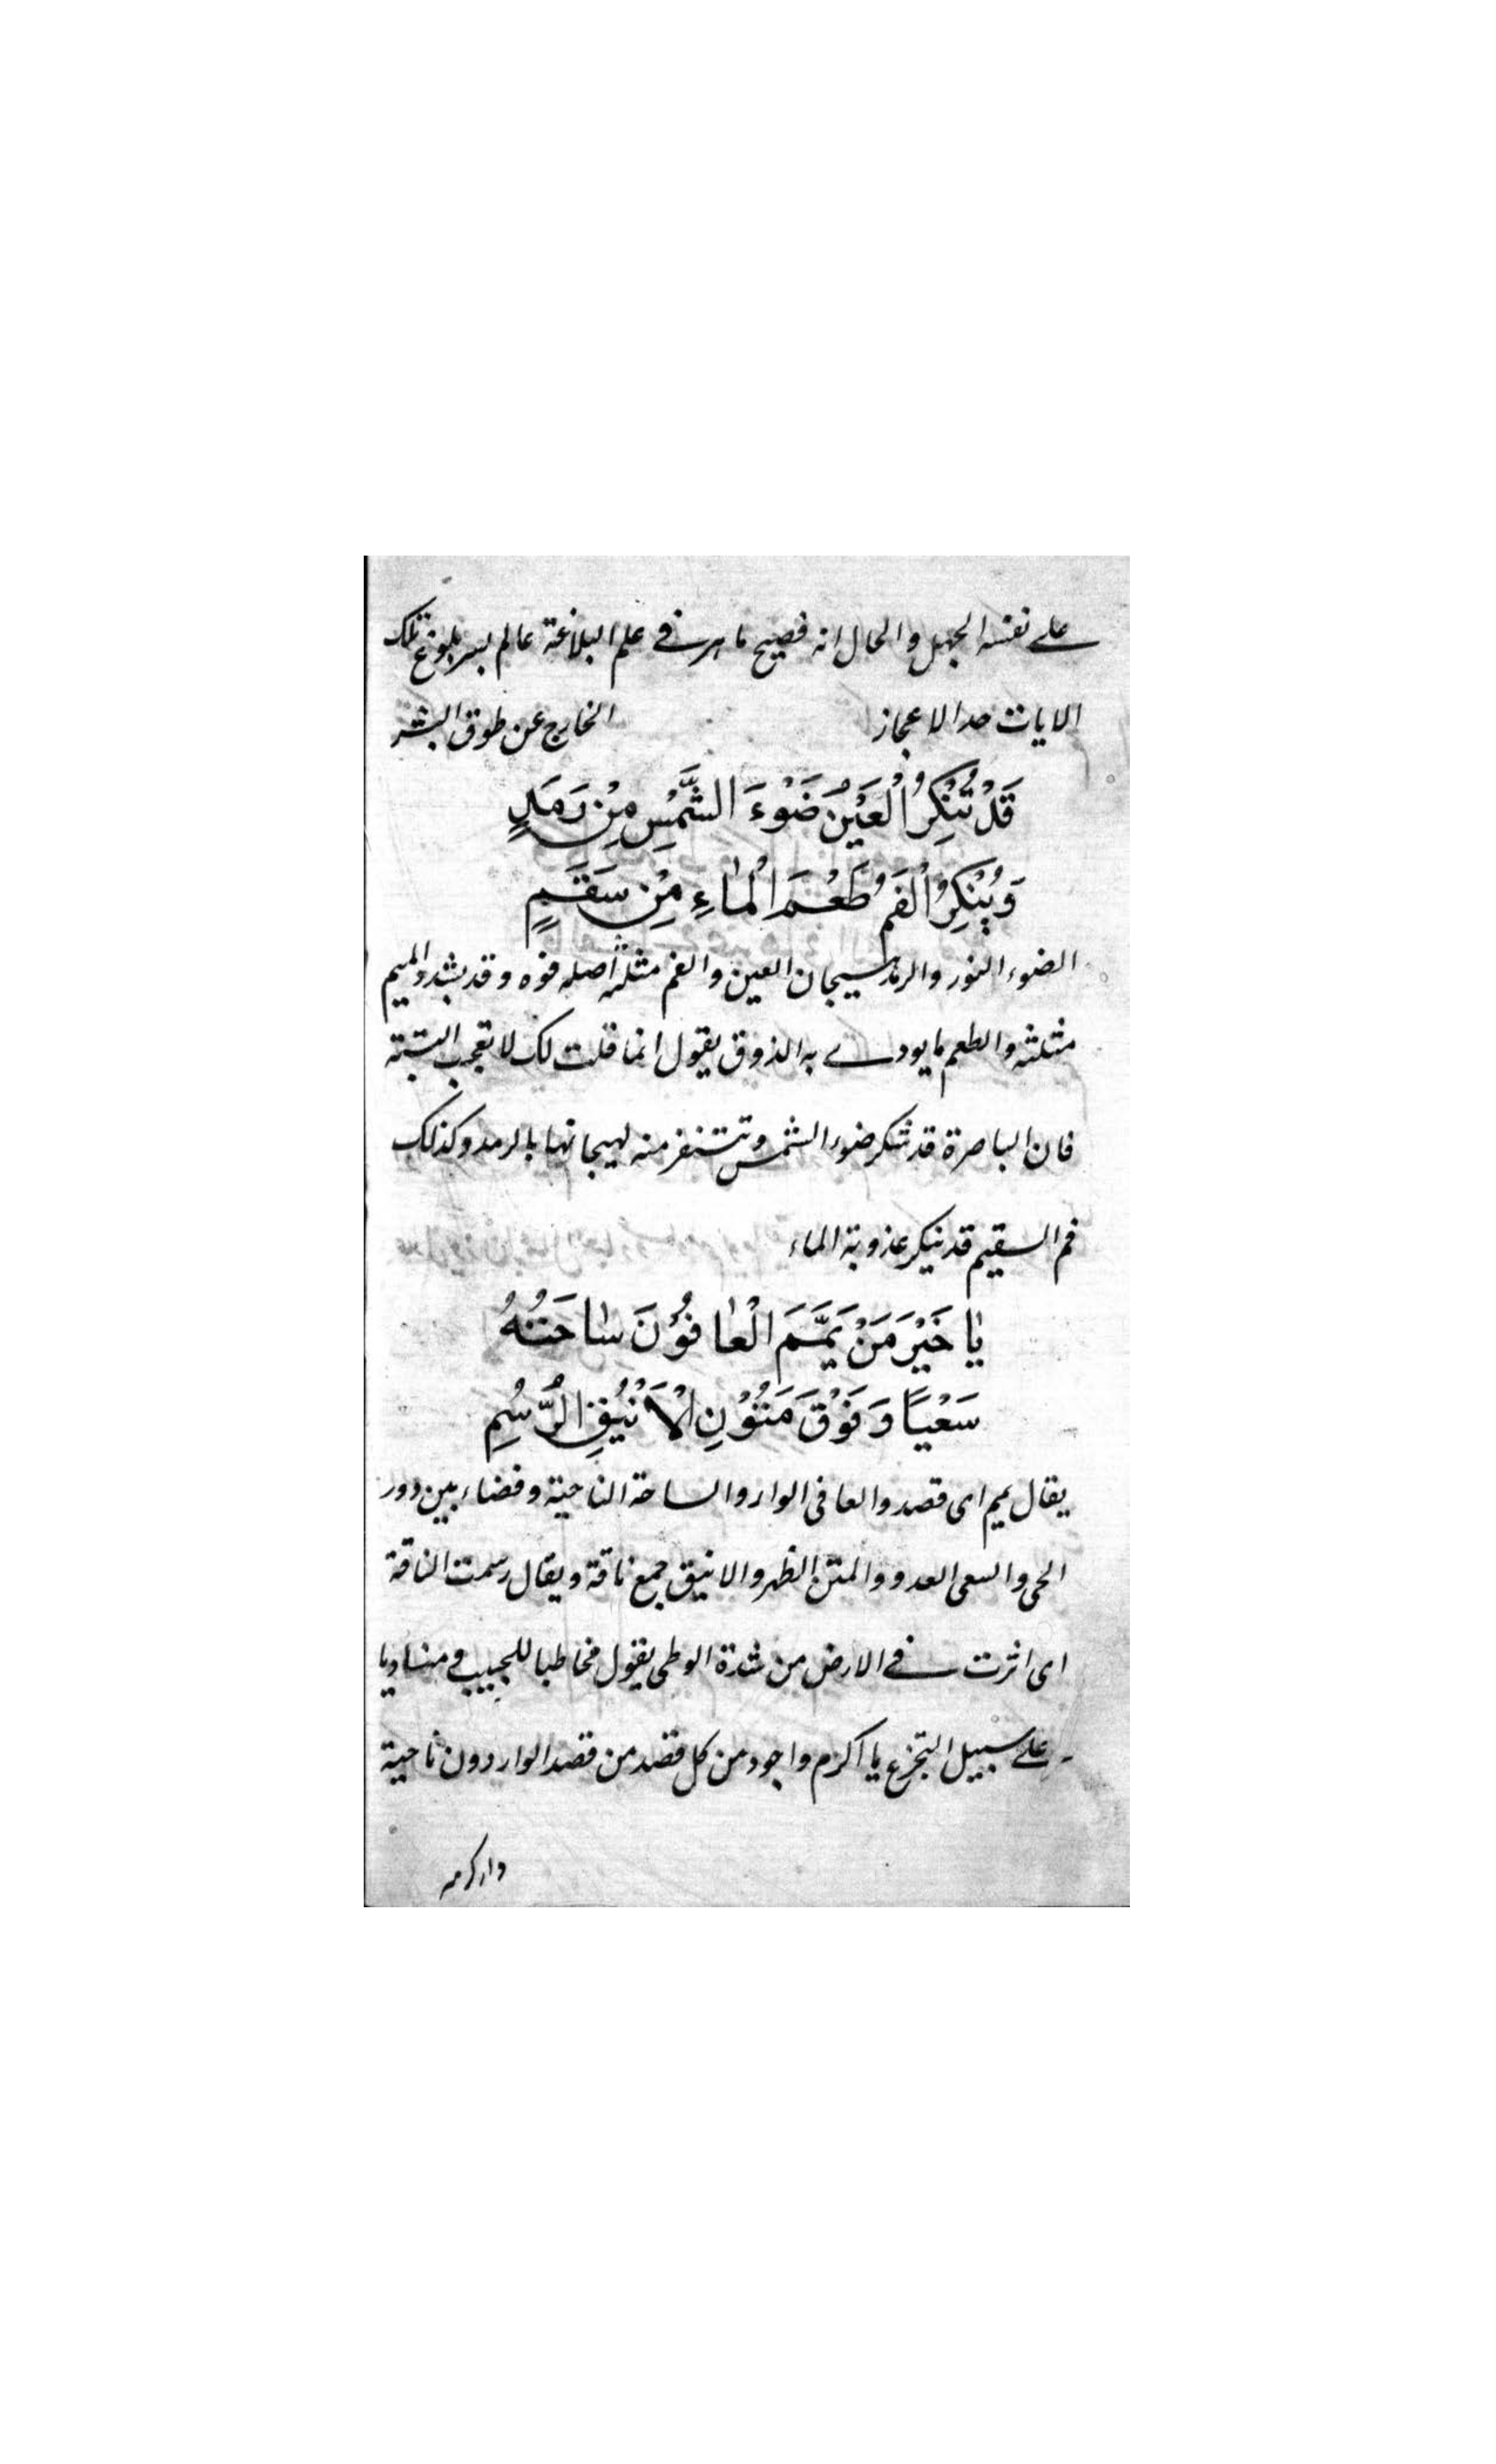 على نفسه الجهل والحال انه فصيح ماهر في علم البلاغة عالم بسر بلوغ تلك
الايات حد الاعجاز الخارج عن طوق البشر
قَدْ تُنْكِرُ الْعَيْنُ ضَوْءَ الشَّمْسِ مِنْ رَمَدٍ
وَيُنْكِرُ الْفَمُ طَعْمَ الْمَاءِ مِنْ سَقَمٍ
الضوء النور والرمد هيجان العين والفم مثلثه اصله فوه وقد يشدد الميم
مثلثة والطعم ما يودى به الذوق يقول انما قلت لك لا تعجب البتته
فان الباصرة قد تنكر ضوء الشمس وتتنفر منه لهيجانها بالرمد وكذلك
فم السقيم قد ينكر عذوبة الماء
يَا خَيْرَ مَنْ يَمَّمَ الْعَافُوْنَ سَاحَتَهُ
سَعْيًا وَفَوْقَ مَتُوْنِ الْاَنْيُقِ الرُّسُمِ
يقال يمم اى قصد والعافى الوارد والساحة الناحية وفضاء بين دور
الحى والسعى العدو والمتن الظهر والانيق جمع ناقة ويقال رسمت الناقة
اى اثرت في الارض من شدة الوطى يقول مخاطبا للحبيب ومناديا
على سبيل التجزع يا اكرم واجود من كل قصد من قصد الواردون ناحية
دار كرمه